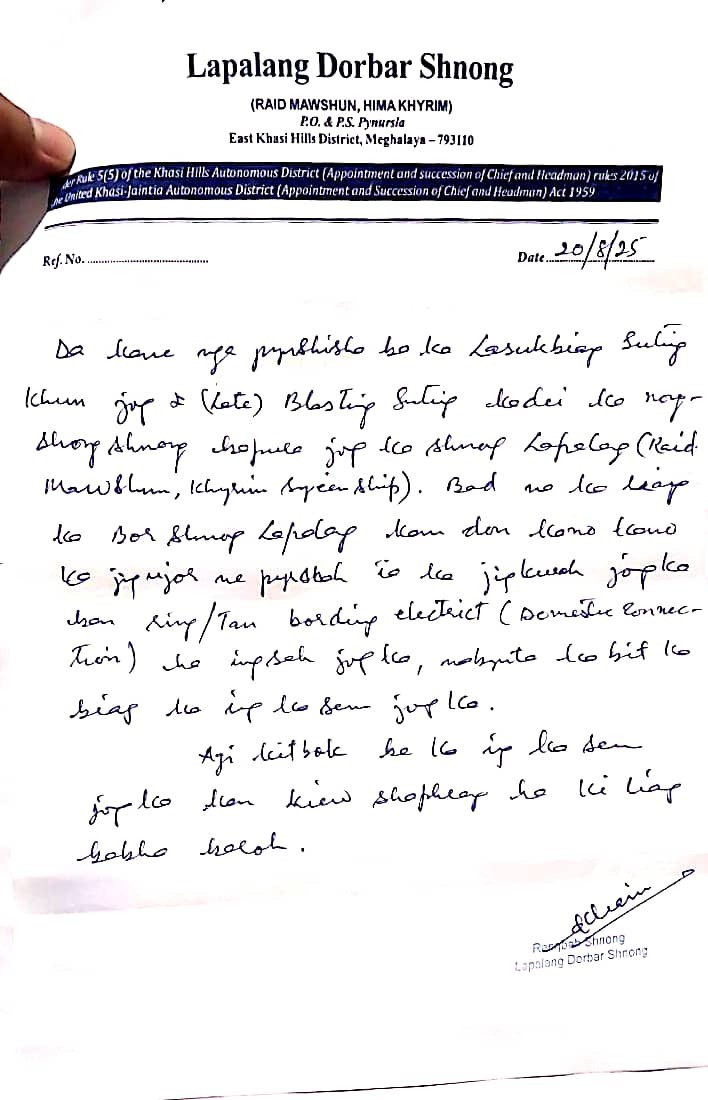 Lapalang Dorbar Shnong
(RAID MAWSHUN, HIMA KHYRIM)
P.O. & P.S. Pynursla
East Khasi Hills District, Meghalaya – 793110
Rule 5(5) of the Khasi Hills Autonomous District (Appointment and succession of Chief and Headman) rules 2015 of
United Khasi-Jaintia Autonomous District (Appointment and Succession of Chief and Headman) Act 1959
Ref. No.
Date 20/8/25
Da kane nga pynshisha ba ka Lasukbiang Suting
khun jong & (Late) Blasting Suting kadei ka nong-
shong shnong hapoh jong ka shnong Lapalang (Raid
Mawshun, Khyrim Syiemship). Bad na ka liang
ka Bor Shnong Lapalang kam don kano kano
ka jingujor ne pyrshah ïa ka jingkwah jong ka
ban ring/Tan bording electrict (Domestic Connec-
tion) ha ingsah jong ka, nabynta ka bit ka
biang ka ing ka sem jong ka.
Ngi kitbok ba ka ing ka sem
jong ka kan kiew shaphrang ha ki liang
babha baroh.
Rangbah Shnong
Lapalang Dorbar Shnong